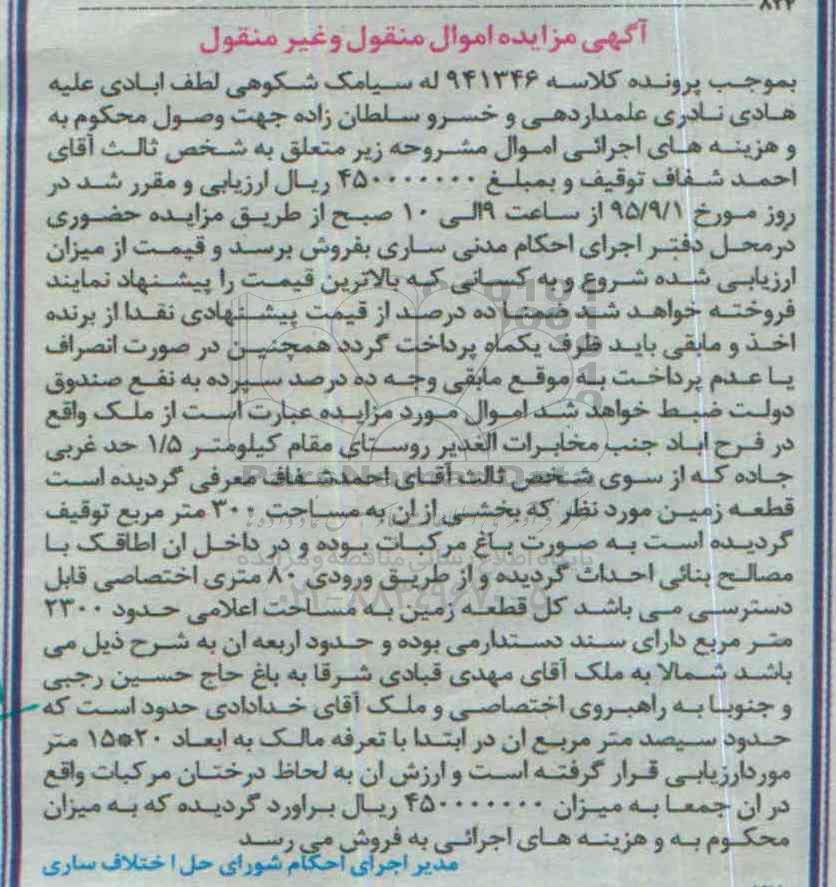 ۸۲۴
آگهی مزایده اموال منقول وغیر منقول
بموجب پرونده کلاسه ۹۴۱۳۴۶ له سیامک شکوهی لطف ابادی علیه
هادی نادری علمداردهی و خسرو سلطان زاده جهت وصول محکوم به
و هزینه های اجرائی اموال مشروحه زیر متعلق به شخص ثالث آقای
احمد شفاف توقیف و بمبلغ ۴۵۰۰۰۰۰۰۰ ریال ارزیابی و مقرر شد در
روز مورخ ۹۵/۹/۱ از ساعت ۹الی ۱۰ صبح از طریق مزایده حضوری
درمحل دفتر اجرای احکام مدنی ساری بفروش برسد و قیمت از میزان
ارزیابی شده شروع و به کسانی که بالاترین قیمت را پیشنهاد نمایند
فروخته خواهد شد ضمنا ده درصد از قیمت پیشنهادی نقدا از برنده
اخذ و مابقی باید ظرف یکماه پرداخت گردد همچنین در صورت انصراف
یا عدم پرداخت به موقع مابقی وجه ده درصد سپرده به نفع صندوق
دولت ضبط خواهد شد اموال مورد مزایده عبارت است از ملک واقع
در فرح اباد جنب مخابرات الغدیر روستای مقام کیلومتر ۱/۵ حد غربی
جاده که از سوی شخص ثالث آقای احمدشفاف معرفی گردیده است
قطعه زمین مورد نظر که بخشی از ان به مساحت ۳۰۰ متر مربع توقیف
گردیده است به صورت باغ مرکبات بوده و در داخل ان اطاقک با
مصالح بنائی احداث گردیده و از طریق ورودی ۸۰ متری اختصاصی قابل
دسترسی می باشد کل قطعه زمین به مساحت اعلامی حدود ۲۳۰۰
متر مربع دارای سند دستدارمی بوده و حدود اربعه ان به شرح ذیل می
باشد شمالا به ملک آقای مهدی قبادی شرقا به باغ حاج حسین رجبی
و جنوبا به راهبروی اختصاصی و ملک آقای خدادادی حدود است که
حدود سیصد متر مربع ان در ابتدا با تعرفه مالک به ابعاد ۲۰*۱۵ متر
موردارزیابی قرار گرفته است و ارزش ان به لحاظ درختان مرکبات واقع
در ان جمعا به میزان ۴۵۰۰۰۰۰۰۰ ریال براورد گردیده که به میزان
محکوم به و هزینه های اجرائی به فروش می رسد
مدیر اجرای احکام شورای حل اختلاف ساری